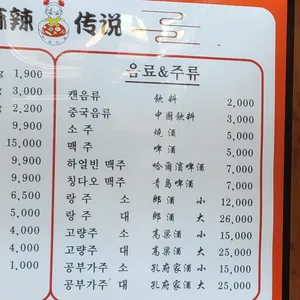 麻辣 传说
음료&주류
캔음류 飮料 2,000
중국음류 中國飮料 3,000
소 주 燒酒 5,000
맥 주 啤酒 5,000
하얼빈 맥주 哈爾濱啤酒 7,000
칭다오 맥주 青島啤酒 7,000
랑 주 소 郎酒 小 12,000
랑 주 대 郎酒 大 26,000
고량주 소 高粱酒 小 15,000
고량주 대 高粱酒 大 25,000
공부가주 소 孔府家酒 小 15,000
공부가주 대 孔府家酒 大 25,000
g 1,900
g 3,000
g 2,200
9,900
15,000
9,900
9,900
6,500
5,000
4,000
4,000
1,000